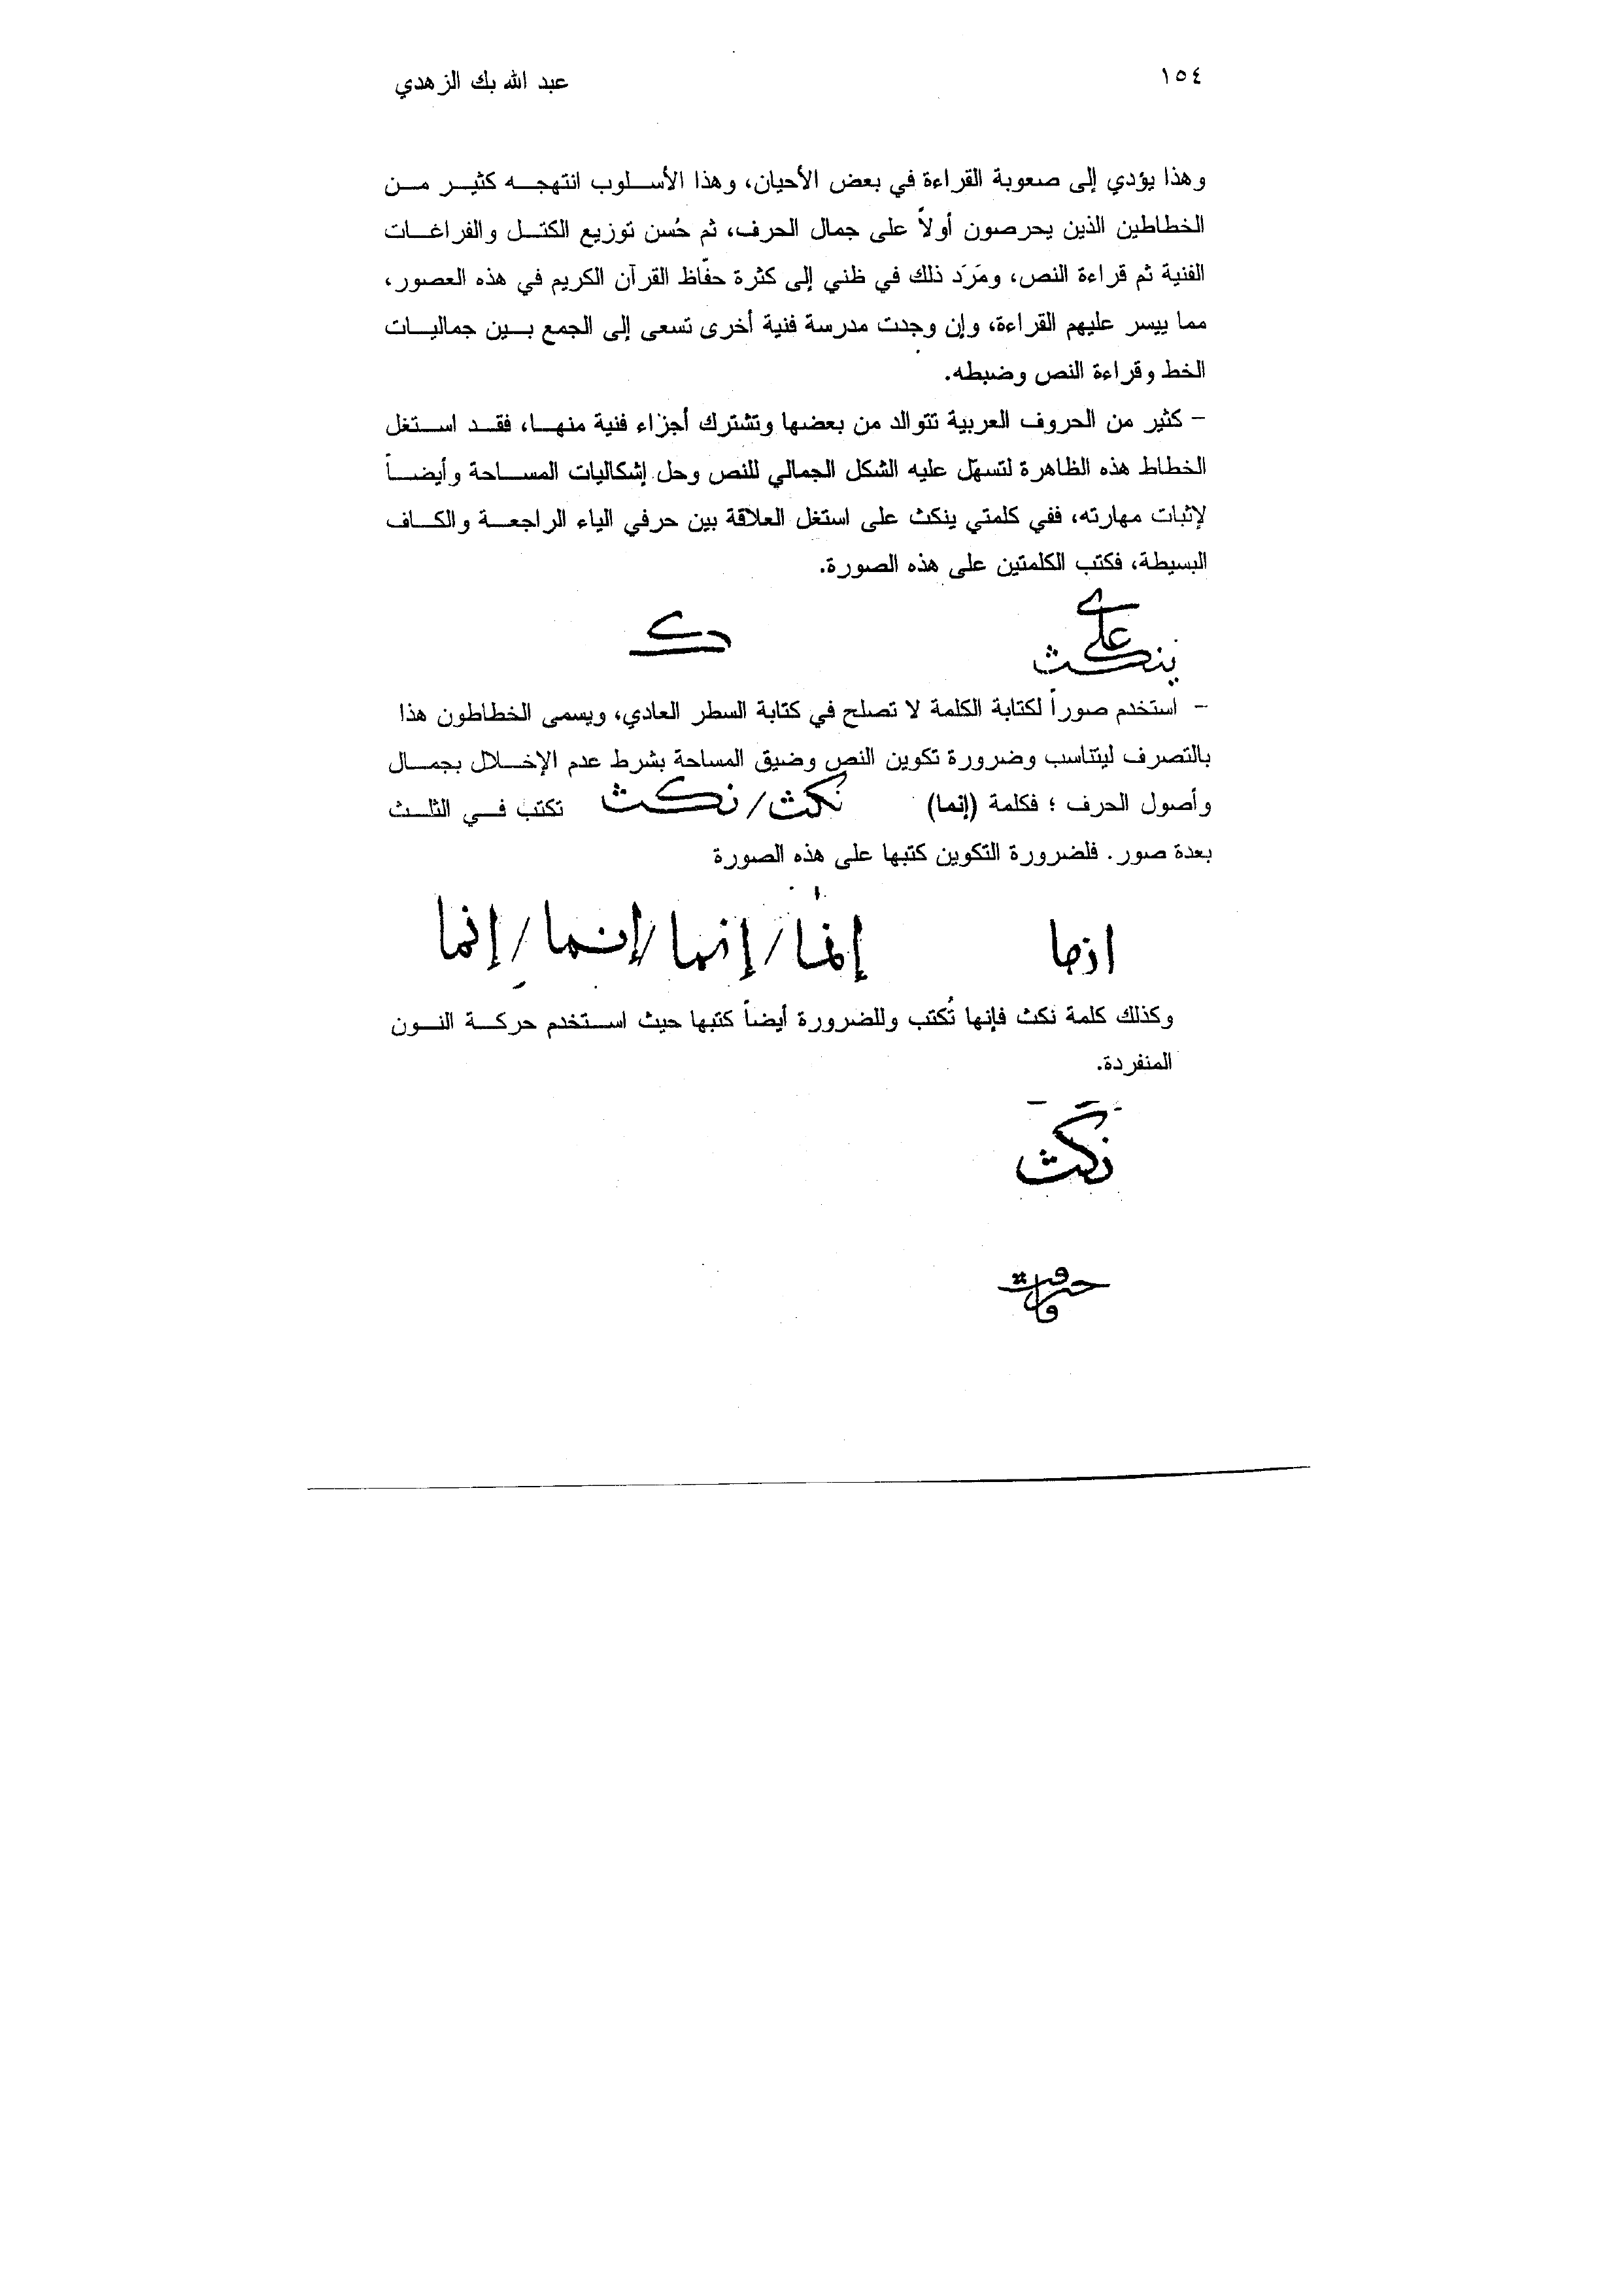 ١٥٤ عبد الله بك الزهدي
وهذا يؤدي إلى صعوبة القراءة في بعض الأحيان، وهذا الأسلوب انتهجه كثير من
الخطاطين الذين يحرصون أولاً على جمال الحرف، ثم حُسن توزيع الكتل والفراغات
الفنية ثم قراءة النص، ومَرَد ذلك في ظني إلى كثرة حفّاظ القرآن الكريم في هذه العصور،
مما ييسر عليهم القراءة، وإن وجدت مدرسة فنية أخرى تسعى إلى الجمع بين جماليات
الخط وقراءة النص وضبطه.
– كثير من الحروف العربية تتوالد من بعضها وتشترك أجزاء فنية منها، فقد استغل
الخطاط هذه الظاهرة لتسهّل عليه الشكل الجمالي للنص وحل إشكاليات المساحة وأيضاً
لإثبات مهارته، ففي كلمتي ينكث على استغل العلاقة بين حرفي الياء الراجعة والكاف
البسيطة، فكتب الكلمتين على هذه الصورة.
ينكث على
– استخدم صوراً لكتابة الكلمة لا تصلح في كتابة السطر العادي، ويسمى الخطاطون هذا
بالتصرف ليتناسب وضرورة تكوين النص وضيق المساحة بشرط عدم الإخلال بجمال
وأصول الحرف ؛ فكلمة (إنما) نكث/نكث تكتب في الثلث
بعدة صور. فلضرورة التكوين كتبها على هذه الصورة
انما إنما/إنما/إنما/إنما
وكذلك كلمة نكث فإنها تُكتب وللضرورة أيضاً كتبها حيث استخدم حركة النون
المنفردة.
نكث